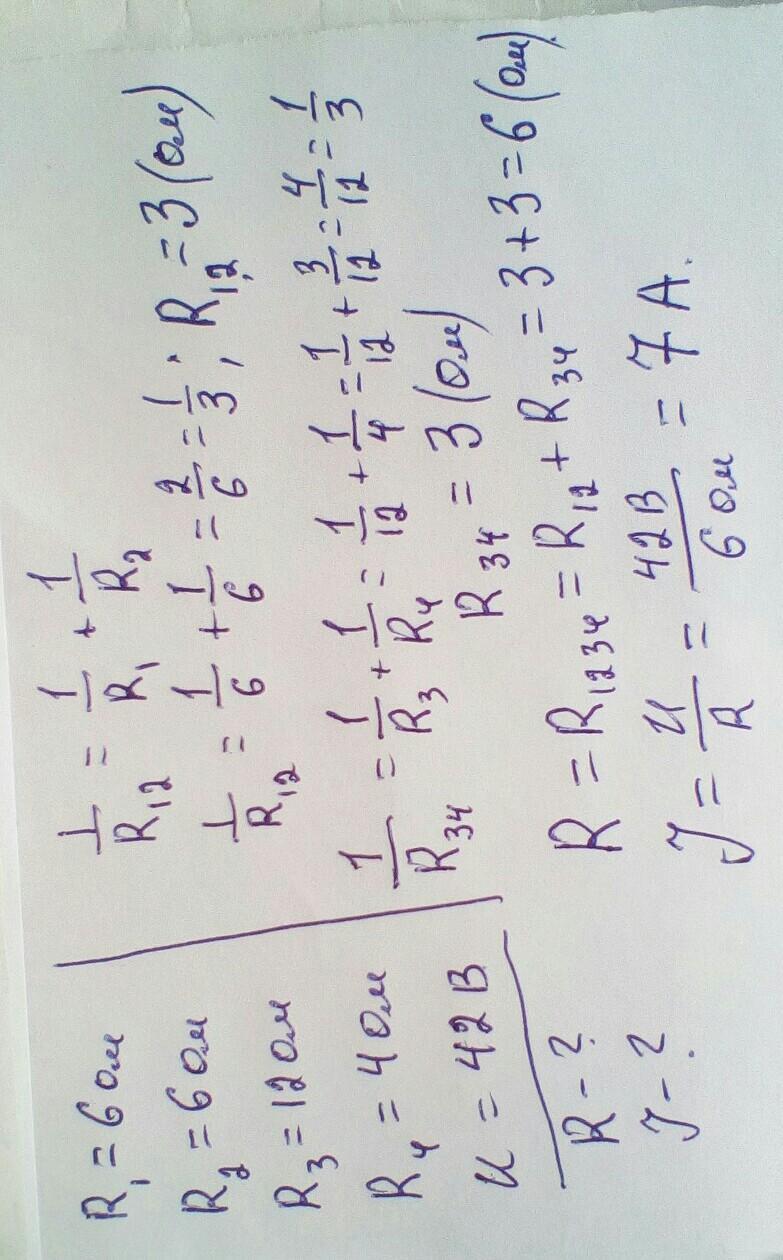 R₁ = 6 Ом
R₂ = 6 Ом
R₃ = 12 Ом
R₄ = 4 Ом
U = 42 В
R - ?
J - ?
1/R₁₂ = 1/R₁ + 1/R₂
1/R₁₂ = 1/6 + 1/6 = 2/6 = 1/3; R₁₂ = 3 (Ом)
1/R₃₄ = 1/R₃ + 1/R₄ = 1/12 + 1/4 = 1/12 + 3/12 = 4/12 = 1/3
R₃₄ = 3 (Ом)
R = R₁₂₃₄ = R₁₂ + R₃₄ = 3 + 3 = 6 (Ом).
J = U/R = 42 В/6 Ом = 7 А.